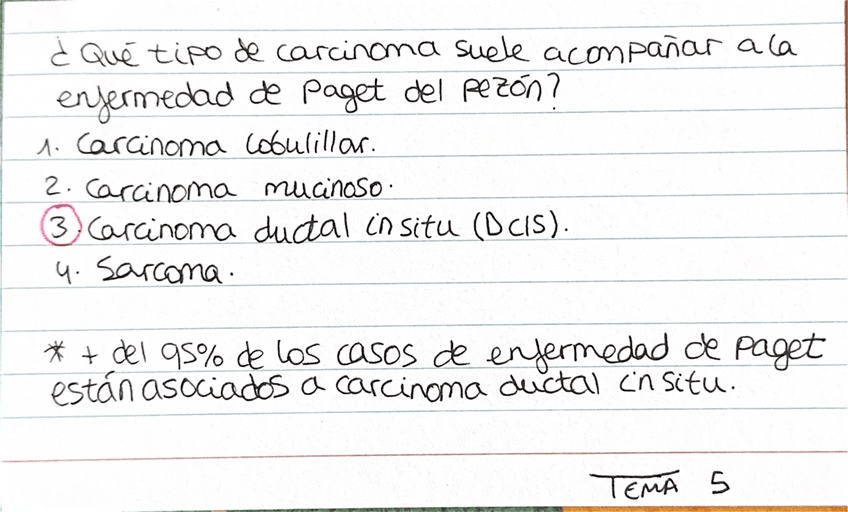 ¿Qué tipo de carcinoma suele acompañar a la
enfermedad de Paget del pezón?
1. Carcinoma lobulillar.
2. Carcinoma mucinoso.
3. Carcinoma ductal in situ (DCIS).
4. Sarcoma.
* + del 95% de los casos de enfermedad de Paget
están asociados a carcinoma ductal in situ.
TEMA 5